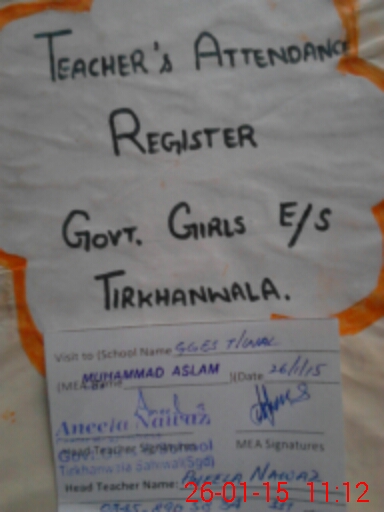 TEACHER'S ATTENDANCE
REGISTER
GOVT. GIRLS E/S
TIRKHANWALA.
Visit to (School Name GGES T/WAL
MUHAMMAD ASLAM )(Date 26/1/15
(MEA
Aneela Nawaz
Head Teacher Signatures MEA Signatures
Govt. School
Tirkhanwala Sahiwal(Sgd)
Head Teacher Name: ANEELA NAWAZ
26-01-15 11:12